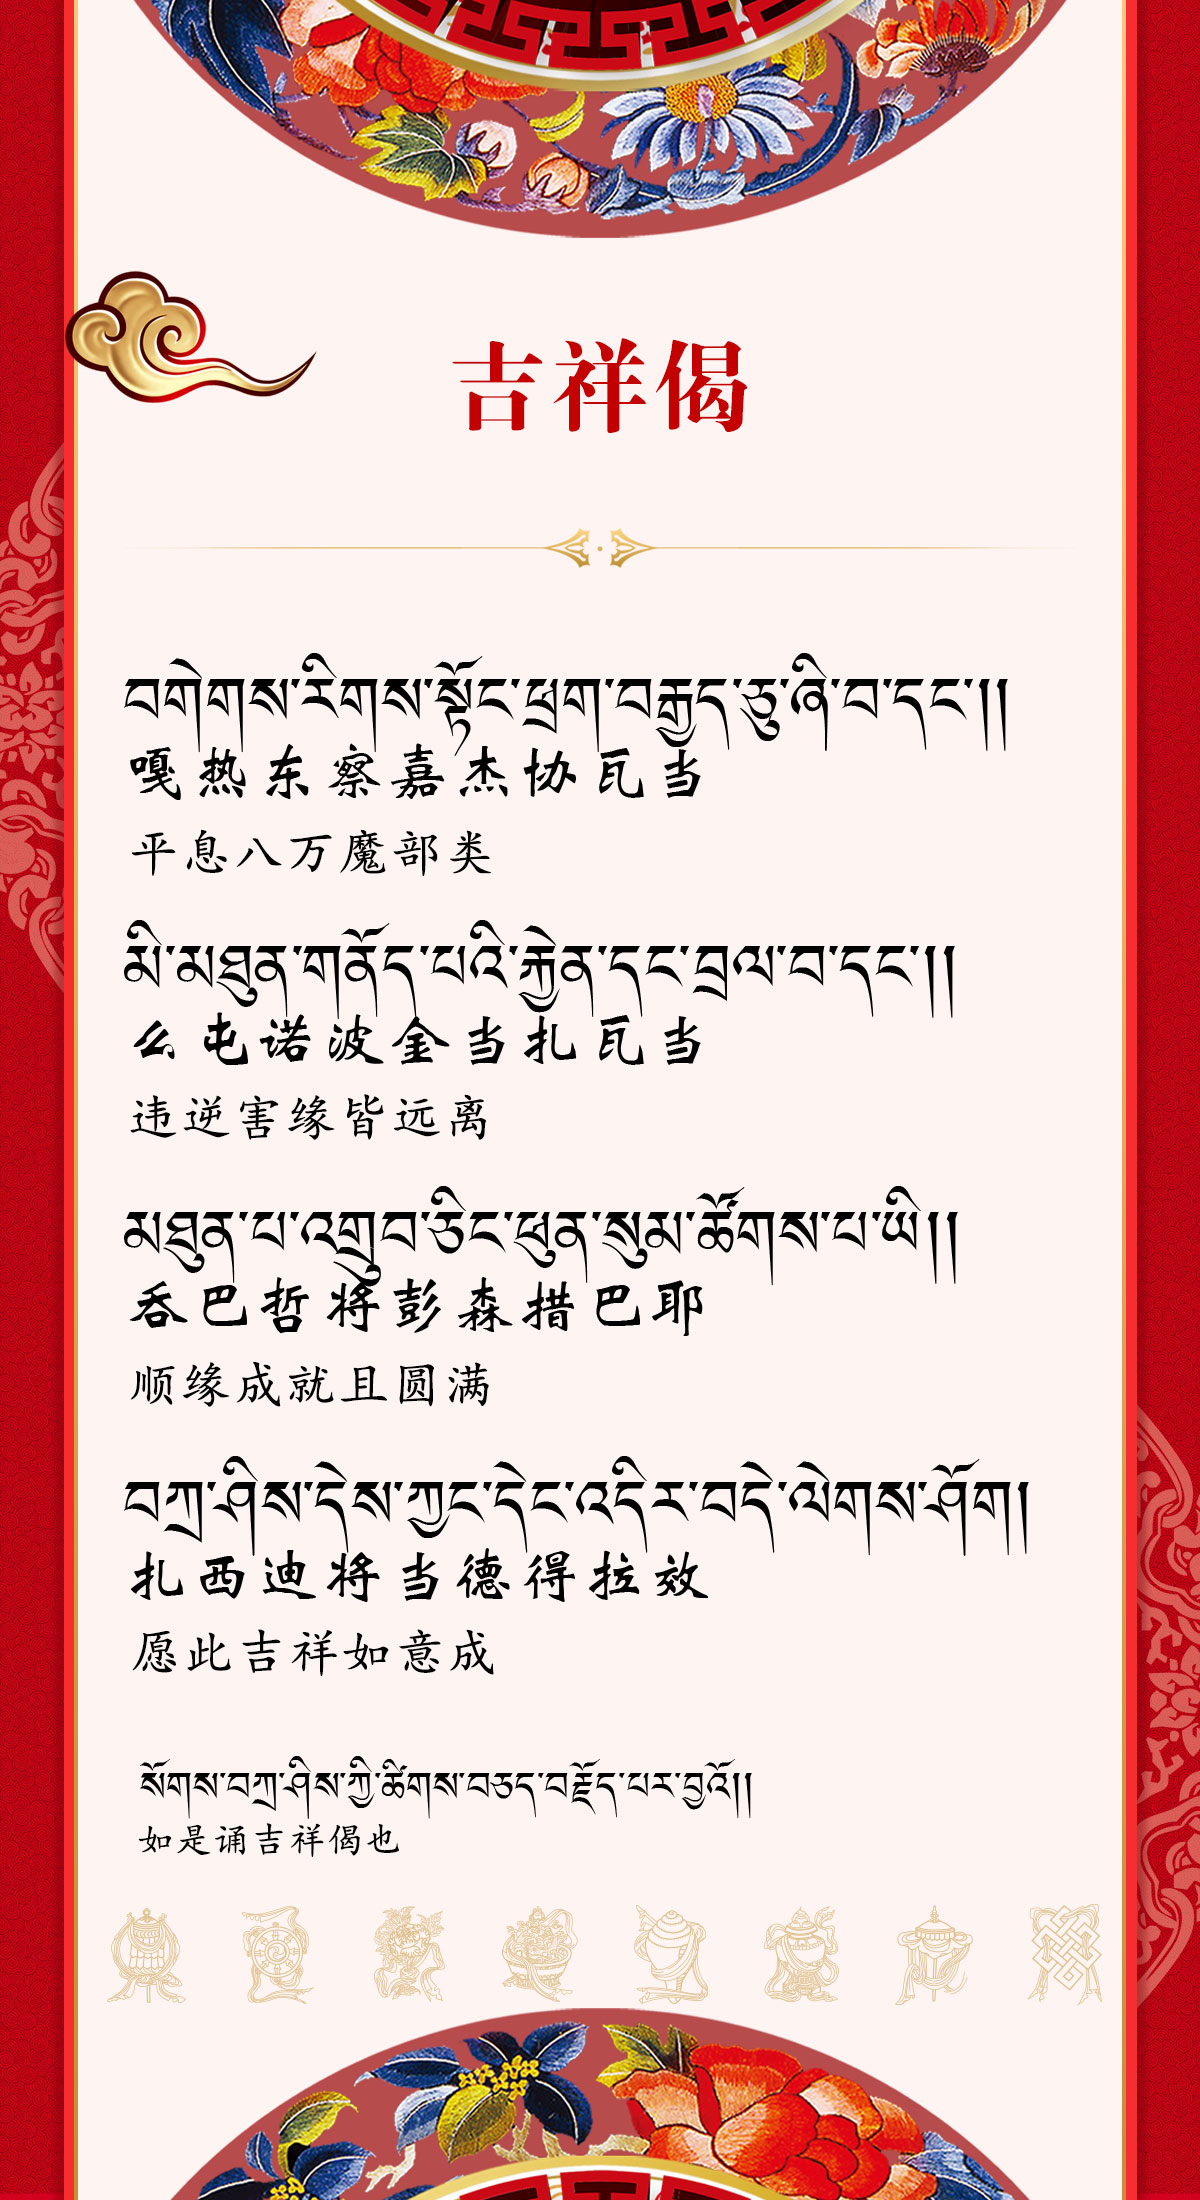 吉祥偈
བགེགས་རིགས་སྟོང་ཕྲག་བརྒྱད་ཅུ་ཞི་བ་དང་།།
嘎热东察嘉杰协瓦当
平息八万魔部类
མི་མཐུན་གནོད་པའི་རྐྱེན་དང་བྲལ་བ་དང་།།
么屯诺波金当扎瓦当
违逆害缘皆远离
མཐུན་པ་འགྲུབ་ཅིང་ཕུན་སུམ་ཚོགས་པ་ཡི།།
吞巴哲将彭森措巴耶
顺缘成就且圆满
བཀྲ་ཤིས་དེས་ཀྱང་དེང་འདིར་བདེ་ལེགས་ཤོག།
扎西迪将当德得拉效
愿此吉祥如意成
སོགས་བཀྲ་ཤིས་ཀྱི་ཚིགས་བཅད་བརྗོད་པར་བྱའོ།།
如是诵吉祥偈也